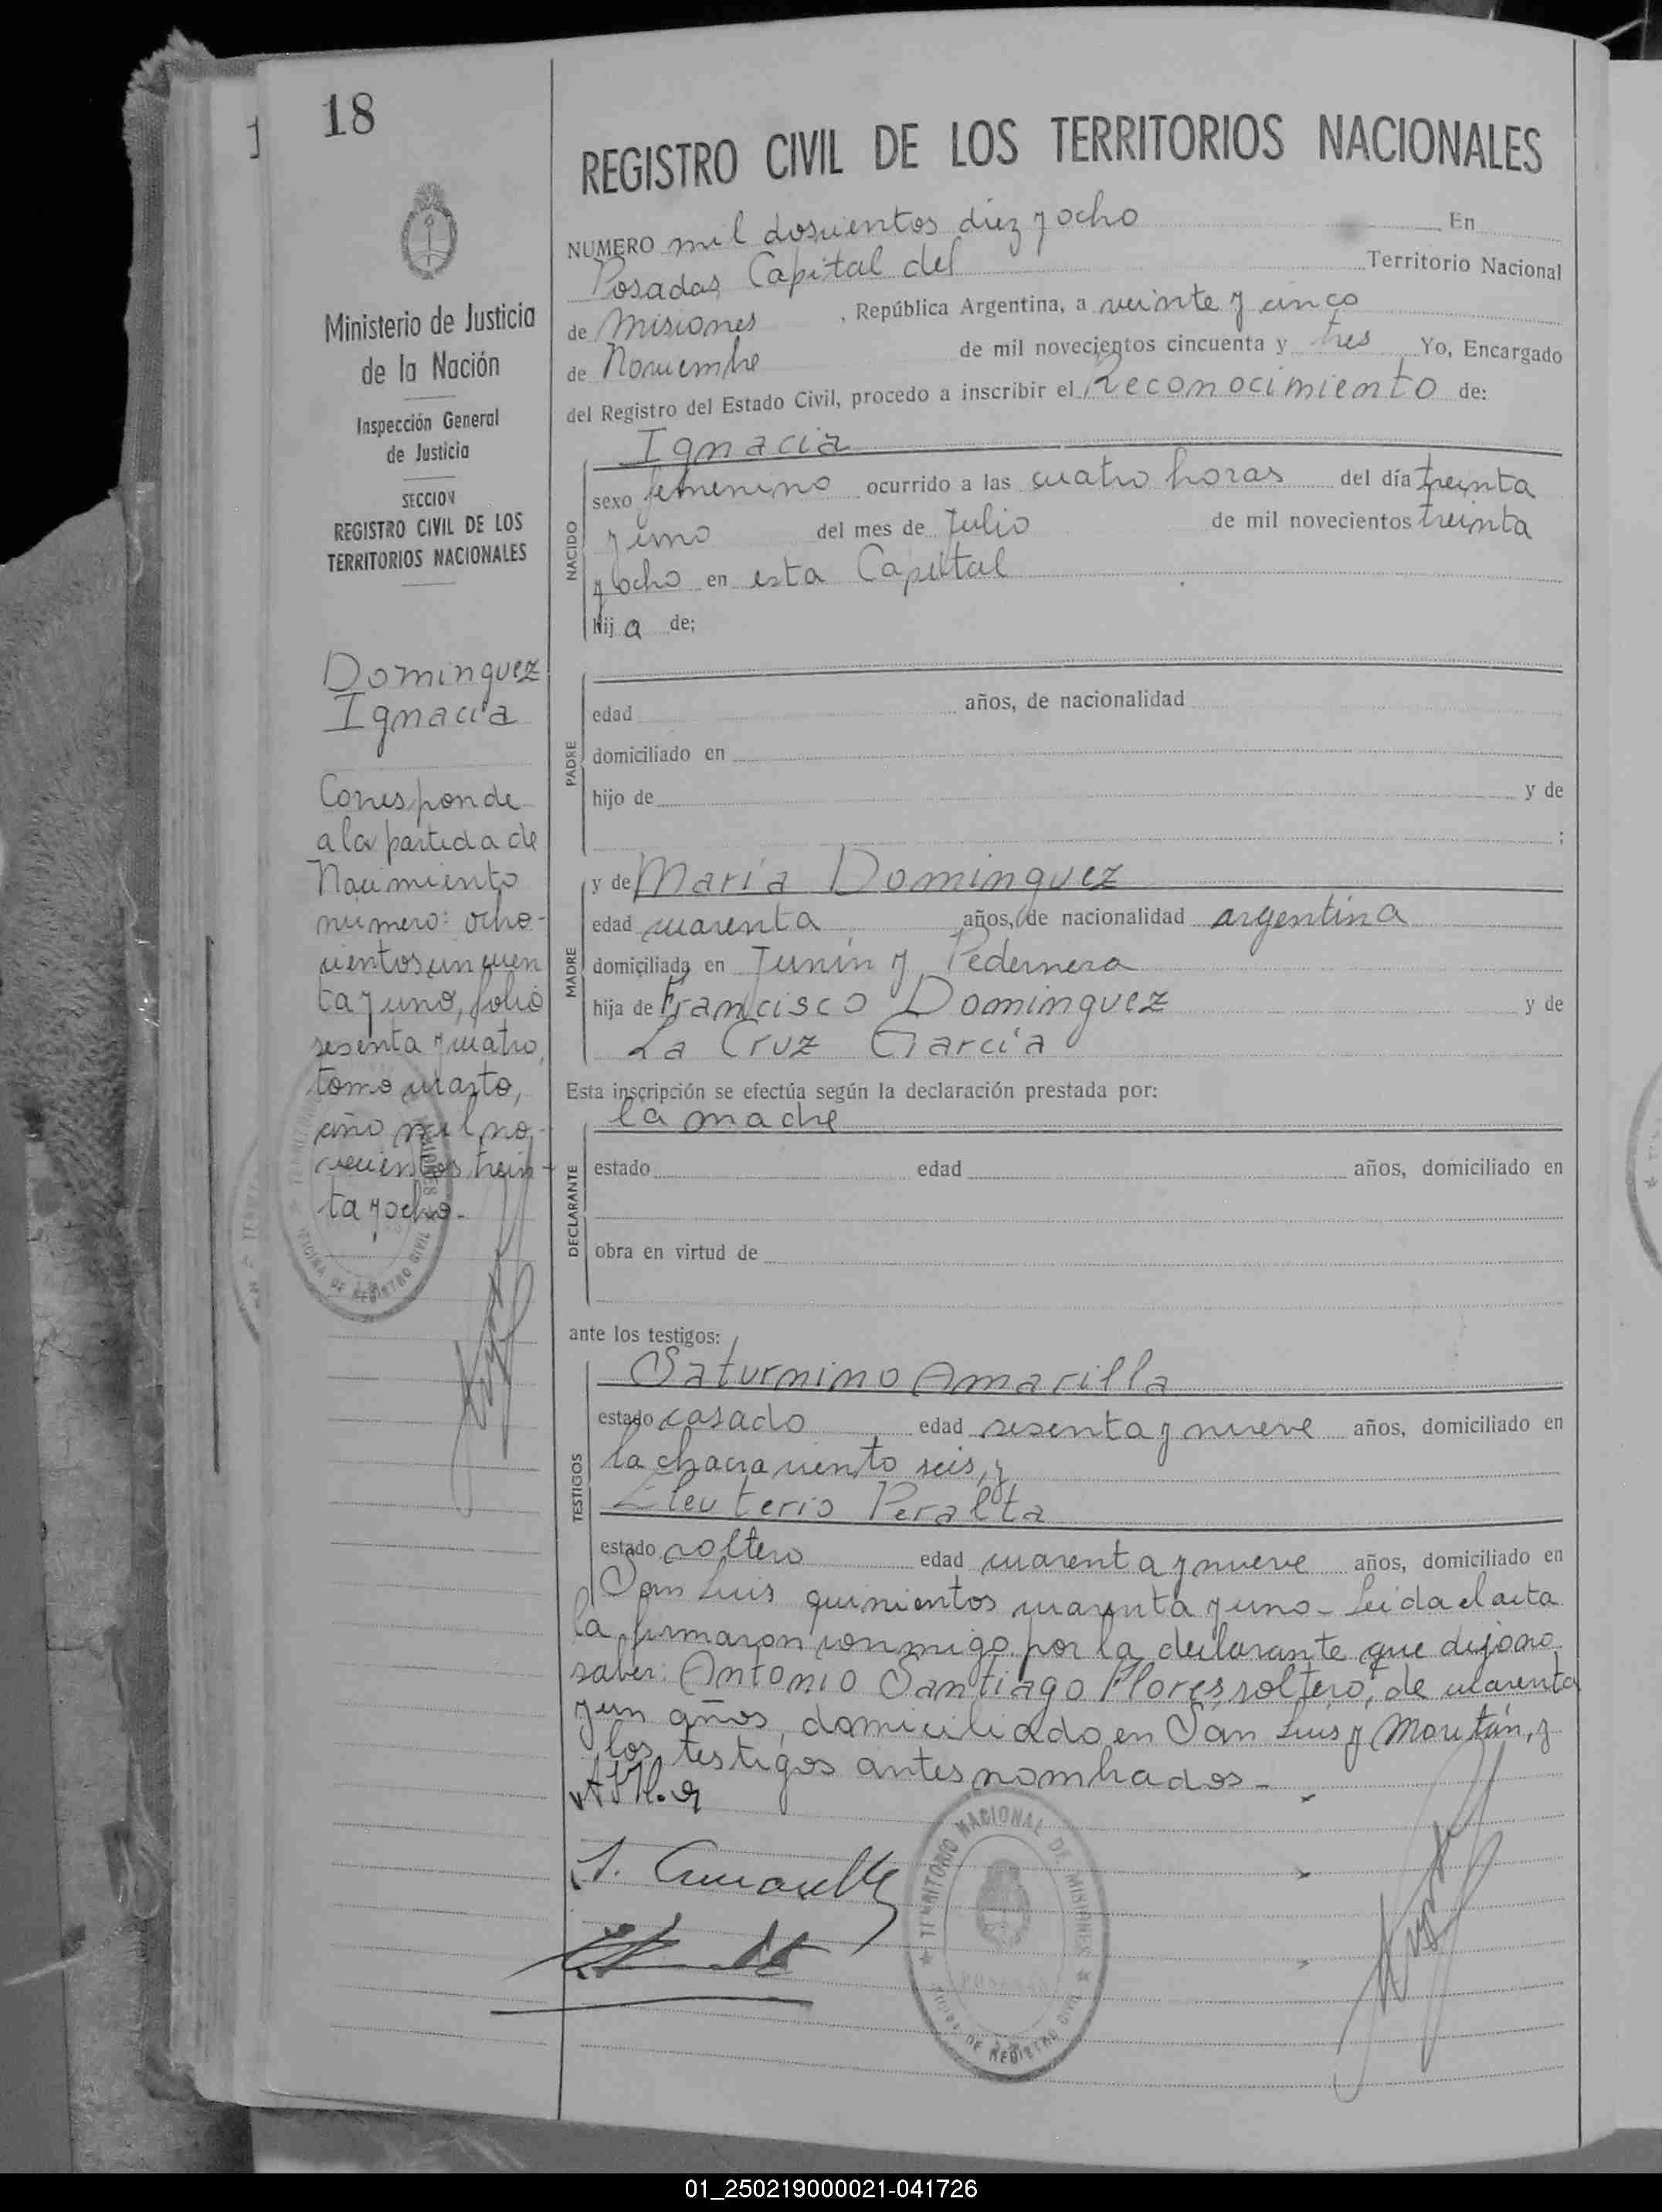 18
REGISTRO CIVIL DE LOS TERRITORIOS NACIONALES
NUMERO mil doscientos diez y ocho En
Posadas Capital del Territorio Nacional
de Misiones, República Argentina, a veinte y cinco
de Noviembre de mil novecientos cincuenta y tres Yo, Encargado
del Registro del Estado Civil, procedo a inscribir el Reconocimiento de:
Ministerio de Justicia
de la Nación
Inspección General
de Justicia
SECCION
REGISTRO CIVIL DE LOS
TERRITORIOS NACIONALES
Dominguez
Ignacia
Corresponde
a la partida de
Nacimiento
número: ocho-
cientos cincuen
ta y uno, folio
sesenta y cuatro,
tomo cuarto,
año mil no-
vecientos trein-
ta y ocho.-
NACIDO
Ignacia
sexo femenino ocurrido a las cuatro horas del día treinta
y uno del mes de Julio de mil novecientos treinta
y ocho en esta Capital
hija de:
PADRE
edad años, de nacionalidad
domiciliado en
hijo de y de
;
MADRE
y de María Dominguez
edad cuarenta años, de nacionalidad argentina
domiciliada en Junín y Pedernera
hija de Francisco Dominguez y de
La Cruz García
Esta inscripción se efectúa según la declaración prestada por:
DECLARANTE
la madre
estado edad años, domiciliado en
obra en virtud de
ante los testigos:
TESTIGOS
Saturnino Amarilla
estado casado edad sesenta y nueve años, domiciliado en
la chacra ciento seis, y
Eleuterio Peralta
estado soltero edad cuarenta y nueve años, domiciliado en
San Luis quinientos cuarenta y uno.- Leída el acta
la firmaron conmigo por la declarante que dijo no
saber: Antonio Santiago Flores, soltero, de cuarenta
y un años, domiciliado en San Luis y Moritán, y
los testigos antes nombrados.-
S. Amarilla
TERRITORIO NACIONAL DE MISIONES
POSADAS
OFICINA DE REGISTRO CIVIL
01_250219000021-041726